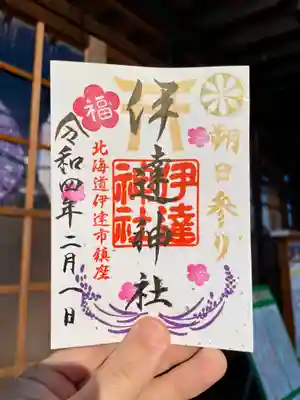 朔日参り
伊達神社
伊達
神社
北海道伊達市鎮座
福
令和四年二月一日